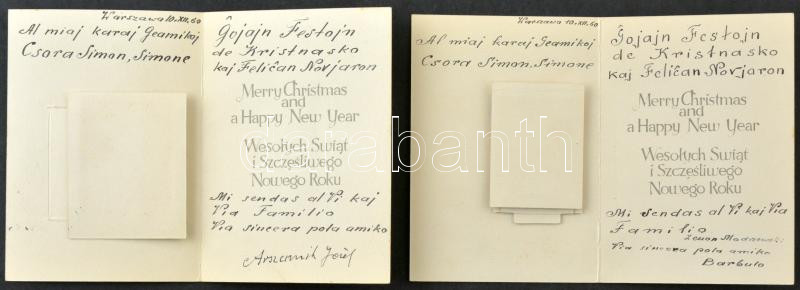 Warszawa 10.XII.60
Al miaj karaj Geamikoj
Csora Simon, Simone
Ĝojajn Festojn
de Kristnasko
kaj Feliĉan Novjaron
Merry Christmas
and
a Happy New Year
Wesołych Świąt
i Szczęśliwego
Nowego Roku
Mi sendas al Vi kaj
Via Familio
Via sincera pola amiko
Józef
Warszawa 10.XII.60
Al miaj karaj Geamikoj
Csora Simon, Simone
Ĝojajn Festojn
de Kristnasko
kaj Feliĉan Novjaron
Merry Christmas
and
a Happy New Year
Wesołych Świąt
i Szczęśliwego
Nowego Roku
Mi sendas al Vi kaj Via
Familio
Zenon
Via sincera pola amiko
Barbulo
darabanth